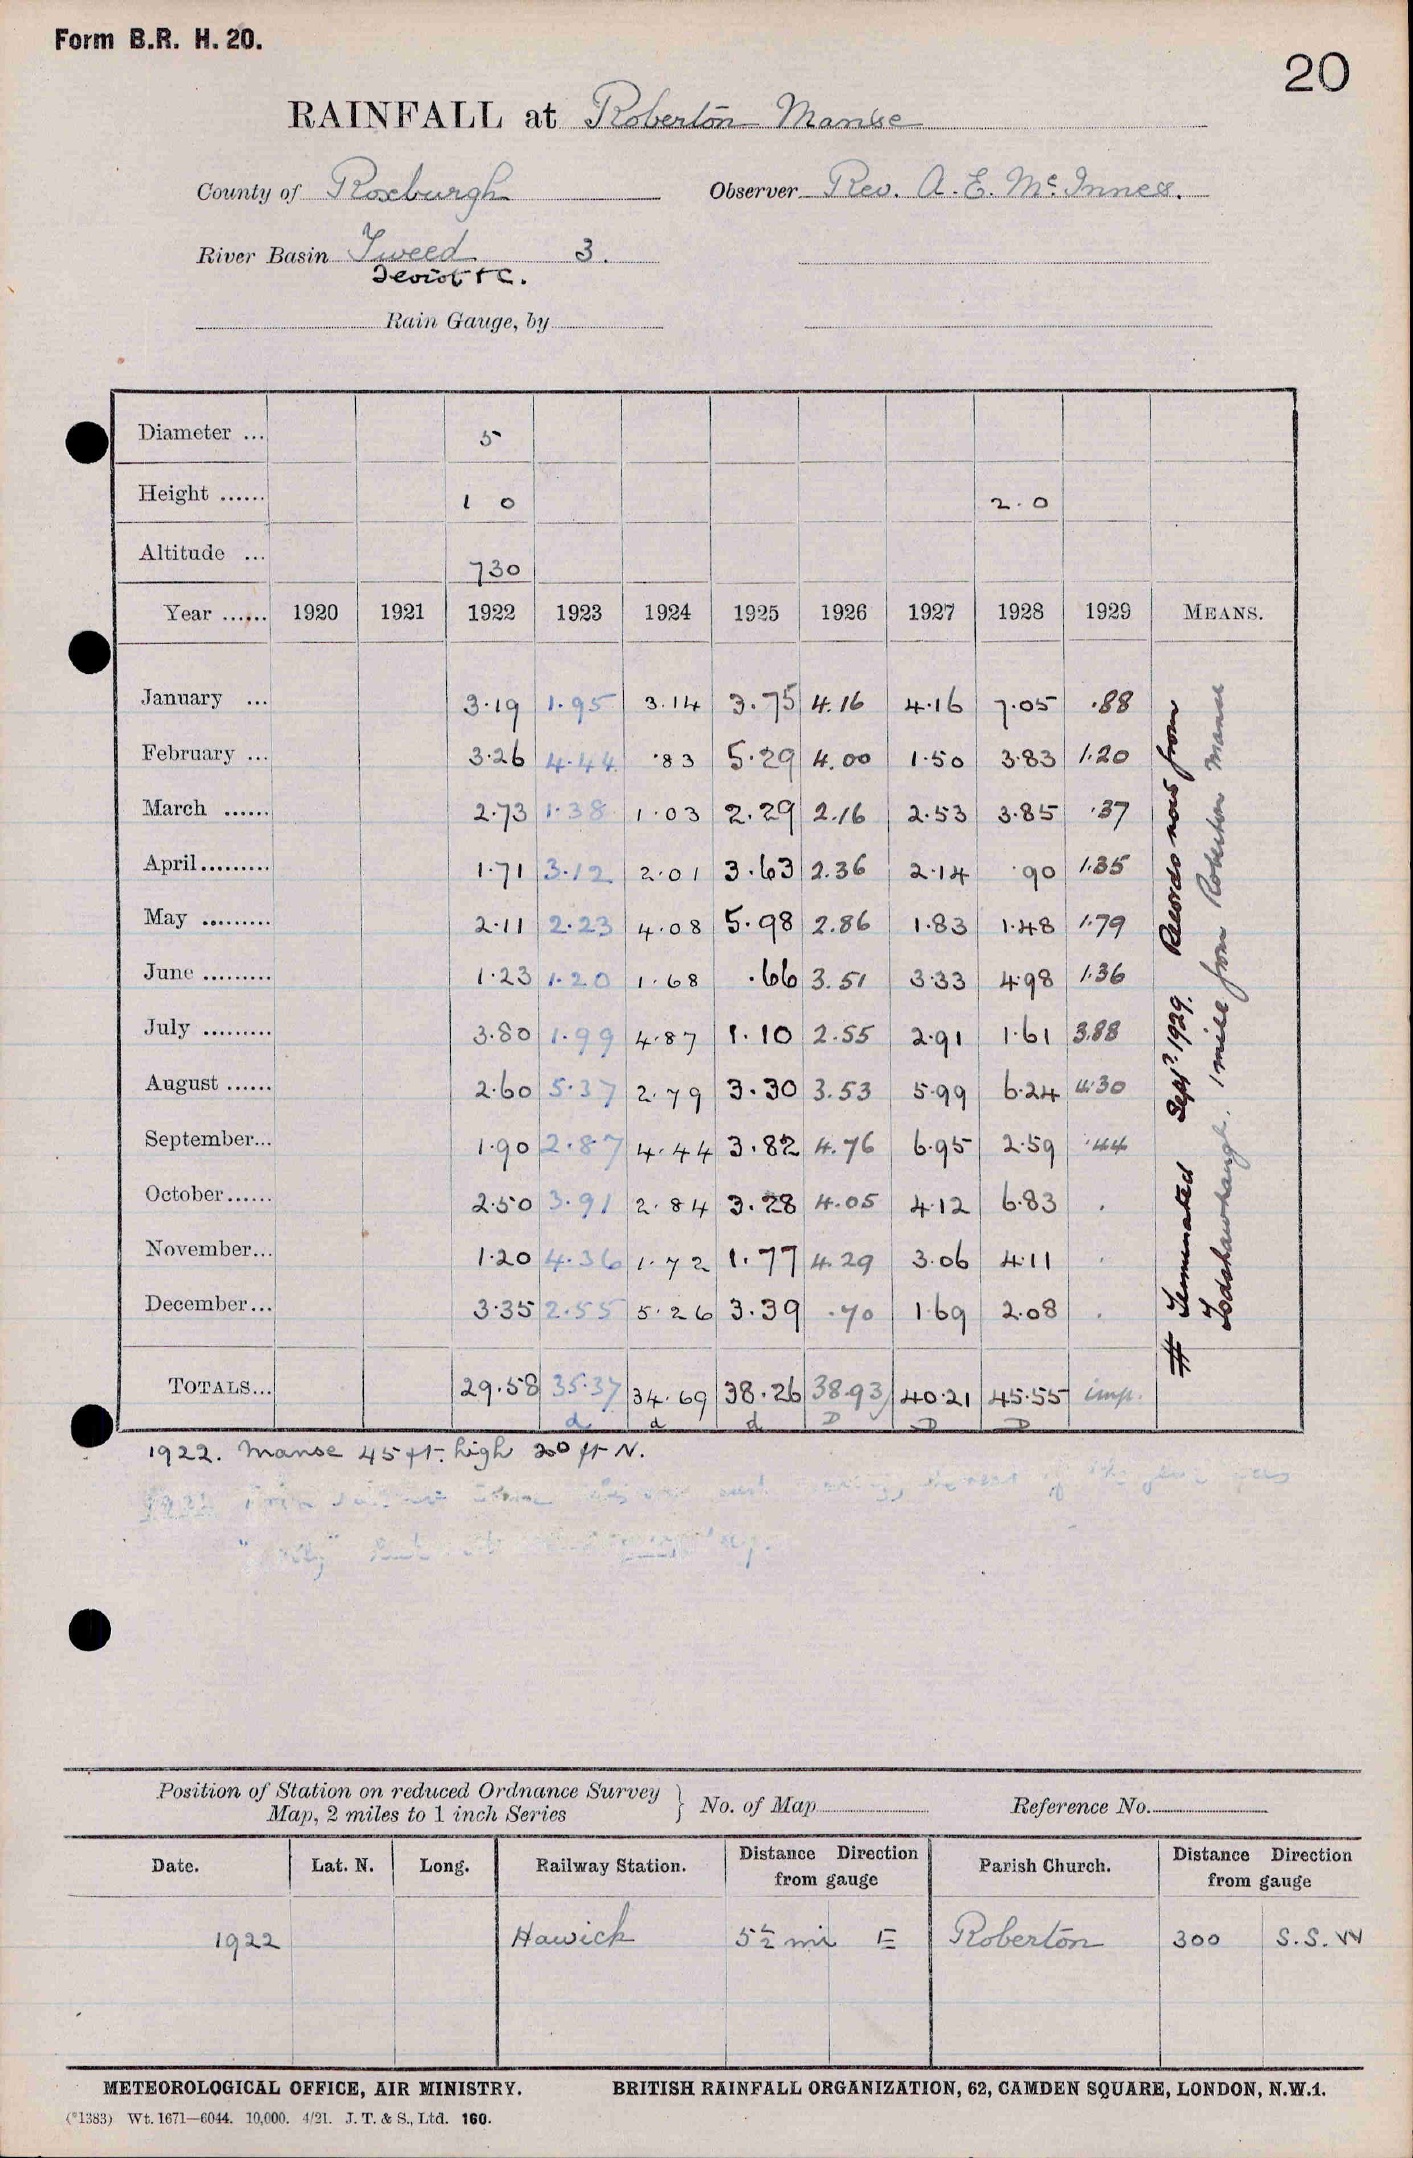 Form B.R. H. 20.
20
RAINFALL at Roberton Manse
County of Roxburgh Observer Rev. A. E. McInnes.
River Basin Tweed 3.
Teviot &c.
Rain Gauge, by
Diameter ... 5
Height ...... 1 0 2.0
Altitude ... 730
Year ...... 1920 1921 1922 1923 1924 1925 1926 1927 1928 1929 MEANS.
January ... 3.19 1.95 3.14 3.75 4.16 4.16 7.05 .88
February ... 3.26 4.44 .83 5.29 4.00 1.50 3.83 1.20
March ...... 2.73 1.38 1.03 2.29 2.16 2.53 3.85 .37
April......... 1.71 3.12 2.01 3.63 2.36 2.14 .90 1.35
May ......... 2.11 2.23 4.08 5.98 2.86 1.83 1.48 1.79
June ......... 1.23 1.20 1.68 .66 3.51 3.33 4.98 1.36
July ......... 3.80 1.99 4.87 1.10 2.55 2.91 1.61 3.88
August ...... 2.60 5.37 2.79 3.30 3.53 5.99 6.24 4.30
September... 1.90 2.87 4.44 3.82 4.76 6.95 2.59 .44
October...... 2.50 3.91 2.84 3.28 4.05 4.12 6.83 .
November... 1.20 4.36 1.72 1.77 4.29 3.06 4.11 .
December... 3.35 2.55 5.26 3.39 .70 1.69 2.08 .
TOTALS... 29.58 35.37 34.69 38.26 38.93 40.21 45.55 imp.
d d d D D D
# Terminated Sept. 1929. Records now from
Todshawhaugh. 1 mile from Roberton Manse
1922. Manse 45 ft. high 20 ft N.
Position of Station on reduced Ordnance Survey
Map, 2 miles to 1 inch Series } No. of Map Reference No.
Date. Lat. N. Long. Railway Station. Distance Direction from gauge Parish Church. Distance Direction from gauge
1922 Hawick 5½ mi E Roberton 300 S.S.W
METEOROLOGICAL OFFICE, AIR MINISTRY. BRITISH RAINFALL ORGANIZATION, 62, CAMDEN SQUARE, LONDON, N.W.1.
(*1383) Wt. 1671—6044. 10,000. 4/21. J. T. & S., Ltd. 160.